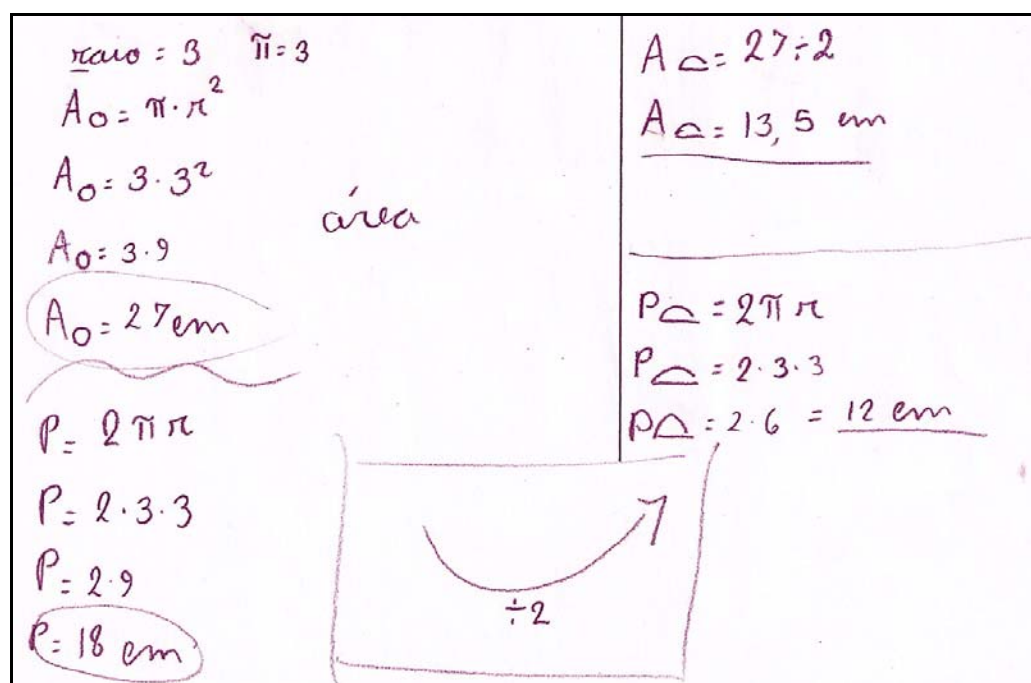 raio = 3 π = 3
A○ = π · r²
A○ = 3 · 3²
A○ = 3 · 9
A○ = 27 cm
área
P = 2 π r
P = 2 · 3 · 3
P = 2 · 9
P = 18 cm
÷2
A⌓ = 27 ÷ 2
A⌓ = 13,5 cm
P⌓ = 2 π r
P⌓ = 2 · 3 · 3
P⌓ = 2 · 6 = 12 cm